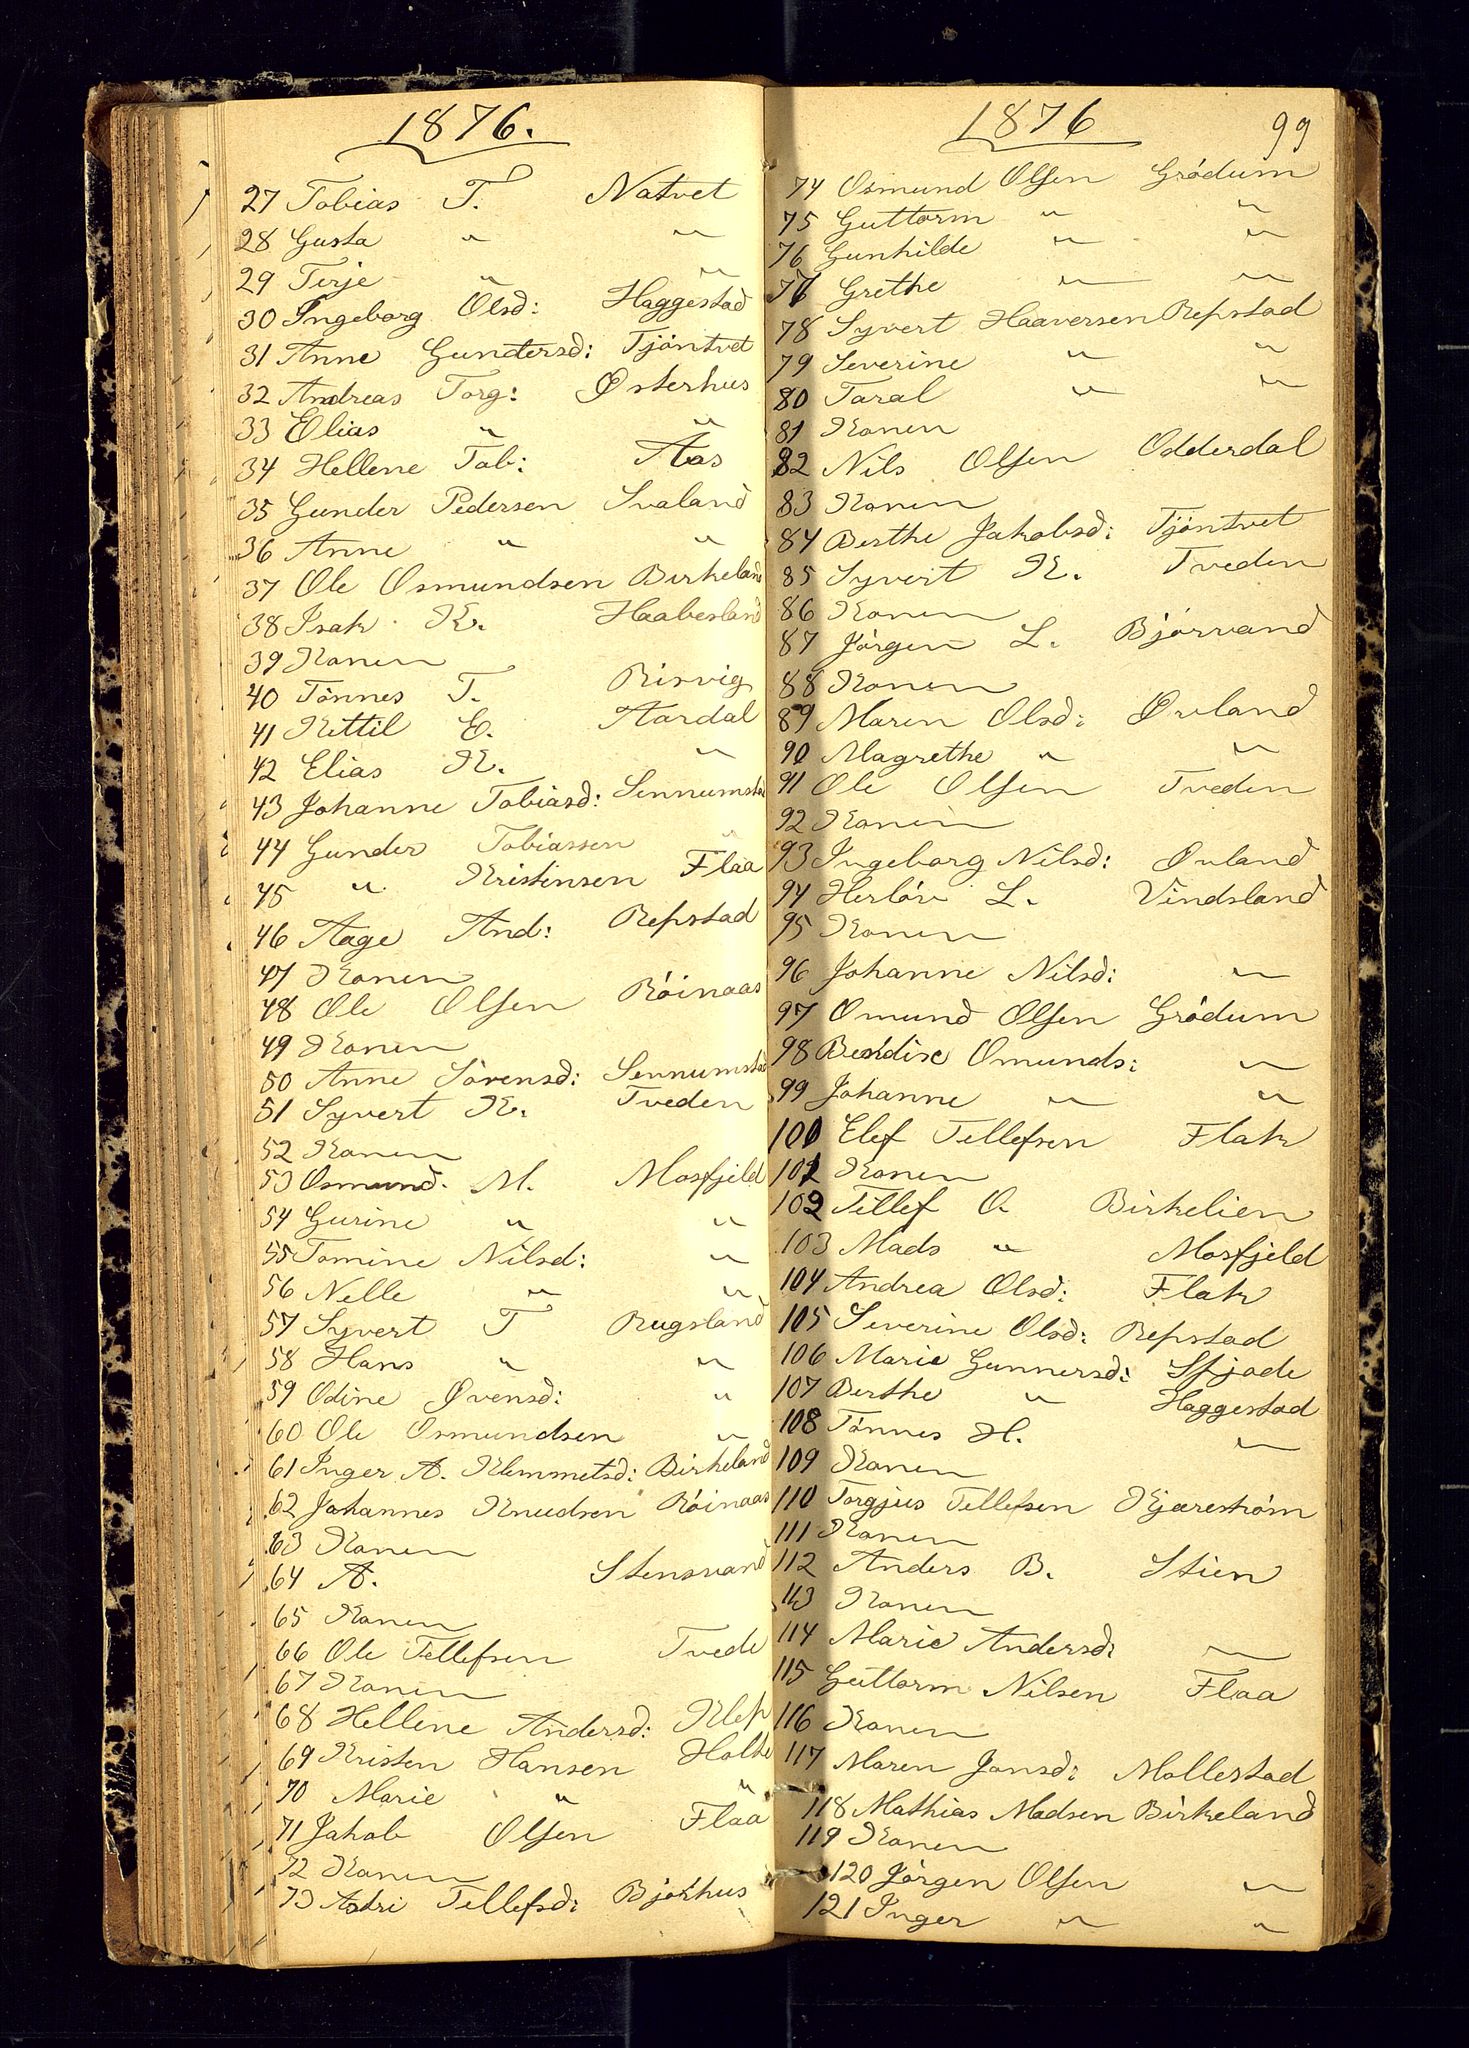 1876.
27 Tobias T. Natvet
28 Gusta " "
29 Terje " "
30 Ingeborg Olsd: Haggestad
31 Anne Gundersd: Tjöntvet
32 Andreas Torg: Østerhus
33 Elias " "
34 Hellene Tob: Aas
35 Gunder Pedersen Svaland
36 Anne " "
37 Ole Osmundsen Birkeland
38 Isak K. Haabesland
39 Konen
40 Tönnes T. Risvig
41 Kittil E. Aardal
42 Elias K. "
43 Johanne Tobiasd: Sennumstad
44 Gunder Tobiassen "
45 " Kristensen Flaa
46 Aage And: Repstad
47 Konen
48 Ole Olsen Röinaas
49 Konen
50 Anne Sörensd: Sennumstad
51 Syvert K. Tveden
52 Konen
53 Osmund. M. Mosfjeld
54 Gurine " "
55 Tomine Nilsd: "
56 Nelle " "
57 Syvert T Rugsland
58 Hans " "
59 Odine Øvensd: "
60 Ole Osmundsen "
61 Inger A. Klemmetsd: Birkeland
62 Johannes Knudsen Röinaas
63 Konen
64 A. Stensvand
65 Konen
66 Ole Tellefsen Tvede
67 Konen
68 Hellene Andersd: Klep
69 Kristen Hansen Holte
70 Marie " "
71 Jakob Olsen Flaa
72 Konen
73 Astri Tellefsd: Bjokhus
1876 99
74 Osmund Olsen Grödum
75 Guttorm " "
76 Gunhilde " "
77 Grethe " "
78 Syvert Haaversen Repstad
79 Severine " "
80 Taral " "
81 Konen
82 Nils Olsen Odderdal
83 Konen
84 Berthe Jakobsd: Tjöntvet
85 Syvert K. Tveden
86 Konen
87 Jörgen L. Bjorvand
88 Konen
89 Maren Olsd: Øvland
90 Magrethe " "
91 Ole Olsen Tveden
92 Konen
93 Ingeborg Nilsd: Øvland
94 Herlöv L. Vindsland
95 Konen
96 Johanne Nilsd: "
97 Omund Olsen Grödum
98 Omunds: "
99 Johanne " "
100 Elef Tellefsen Flak
101 Konen
102 Tellef O. Birkelien
103 Mads " Mosfjeld
104 Andrea Olsd: Flak
105 Severine Olsd: Repstad
106 Marie Gunnersd:
107 Berthe " Haggestad
108 Tönnes H. "
109 Konen
110 Torgjus Tellefsen Kjareström
111 Konen
112 Anders B. Stien
113 Konen
114 Marie Andersd: "
115 Guttorm Nilsen Flaa
116 Konen
117 Maren Jansd: Mollestad
118 Mathias Madsen Birkeland
119 Konen
120 Jörgen Olsen "
121 Inger " "